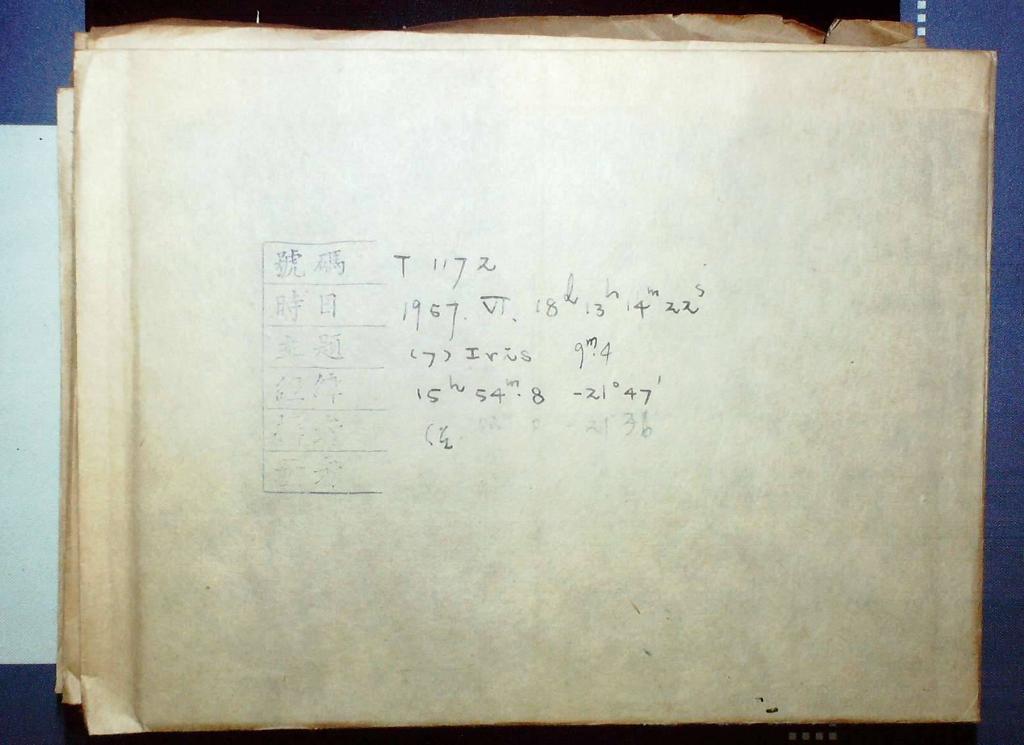 號碼 T 1172
時日 1967. VI. 18ᵈ 13ʰ 14ᵐ 22ˢ
主題 (7) Iris 9ᵐ.4
經緯 15ʰ 54ᵐ.8 -21°47'
-21 36